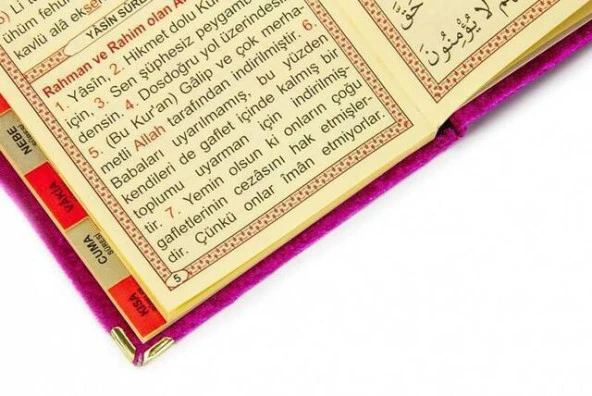 ühüm fehüm
kavlü alâ
YÂSÎN SÛRE
Rahman ve Rahim olan
1. Yâsîn, 2. Hikmet dolu
için, 3. Sen şüphesiz peygamb
densin. 4. Dosdoğru yol üzerindesi
5. (Bu Kur'an) Gâlip ve çok merha-
metli Allah tarafından indirilmiştir. 6.
Babaları uyarılmamış, bu yüzden
kendileri de gaflet içinde kalmış bir
toplumu uyarman için indirilmiş-
tir. 7. Yemin olsun ki onların çoğu
gafletlerinin cezasını hak etmişler-
dir. Çünkü onlar îmân etmiyorlar.
5
NEBE
VAKIA
CUMA
SÛRESİ
KISA
حَقَّ
لَا يُؤْمِنُونَ